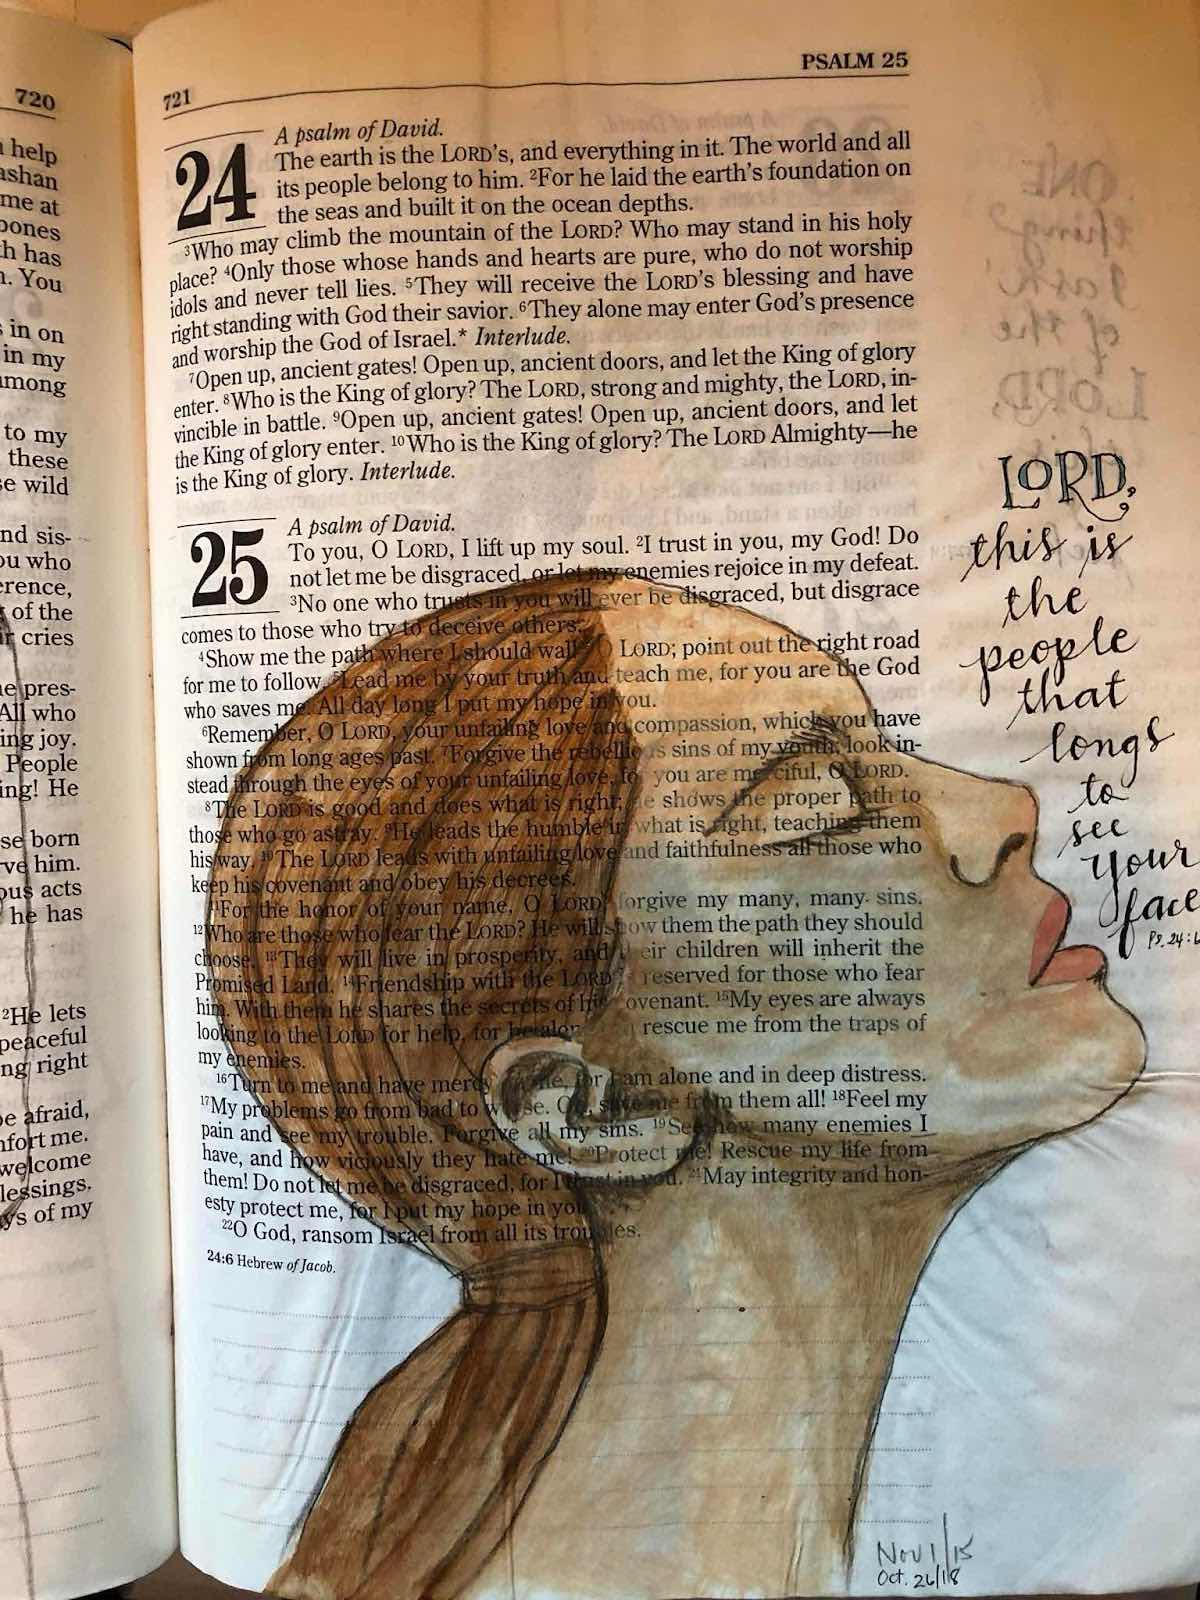 720
help
ashan
me at
bones
h has
n. You
in on
in my
among
to my
these
se wild
nd sis-
ou who
erence,
of the
ir cries
e pres-
All who
ing joy.
People
ing! He
se born
rve him.
ous acts
he has
²He lets
peaceful
ng right
be afraid,
nfort me.
welcome
lessings,
ys of my
721
PSALM 25
24
A psalm of David.
The earth is the LORD's, and everything in it. The world and all
its people belong to him. ²For he laid the earth's foundation on
the seas and built it on the ocean depths.
³Who may climb the mountain of the LORD? Who may stand in his holy
place? ⁴Only those whose hands and hearts are pure, who do not worship
idols and never tell lies. ⁵They will receive the LORD's blessing and have
right standing with God their savior. ⁶They alone may enter God's presence
and worship the God of Israel.* Interlude.
⁷Open up, ancient gates! Open up, ancient doors, and let the King of glory
enter. ⁸Who is the King of glory? The LORD, strong and mighty, the LORD, in-
vincible in battle. ⁹Open up, ancient gates! Open up, ancient doors, and let
the King of glory enter. ¹⁰Who is the King of glory? The LORD Almighty—he
is the King of glory. Interlude.
25
A psalm of David.
To you, O LORD, I lift up my soul. ²I trust in you, my God! Do
not let me be disgraced, or let my enemies rejoice in my defeat.
³No one who trusts in you will ever be disgraced, but disgrace
comes to those who try to deceive others.
⁴Show me the path where I should walk, O LORD; point out the right road
for me to follow. ⁵Lead me by your truth and teach me, for you are the God
who saves me. All day long I put my hope in you.
⁶Remember, O LORD, your unfailing love and compassion, which you have
shown from long ages past. ⁷Forgive the rebellious sins of my youth; look in-
stead through the eyes of your unfailing love, for you are merciful, O LORD.
⁸The LORD is good and does what is right; he shows the proper path to
those who go astray. ⁹He leads the humble in what is right, teaching them
his way. ¹⁰The LORD leads with unfailing love and faithfulness all those who
keep his covenant and obey his decrees.
¹¹For the honor of your name, O LORD, forgive my many, many sins.
¹²Who are those who fear the LORD? He will show them the path they should
choose. ¹³They will live in prosperity, and their children will inherit the
Promised Land. ¹⁴Friendship with the LORD is reserved for those who fear
him. With them he shares the secrets of his covenant. ¹⁵My eyes are always
looking to the LORD for help, for he alone can rescue me from the traps of
my enemies.
¹⁶Turn to me and have mercy on me, for I am alone and in deep distress.
¹⁷My problems go from bad to worse. Oh, save me from them all! ¹⁸Feel my
pain and see my trouble. Forgive all my sins. ¹⁹See how many enemies I
have, and how viciously they hate me! ²⁰Protect me! Rescue my life from
them! Do not let me be disgraced, for I trust in you. ²¹May integrity and hon-
esty protect me, for I put my hope in you.
²²O God, ransom Israel from all its troubles.
24:6 Hebrew of Jacob.
ONE
thing
I ask
of the
LORD,
LORD,
this is
the
people
that
longs
to
see
your
face
Ps. 24:6
Nov 1/15
Oct. 26/18